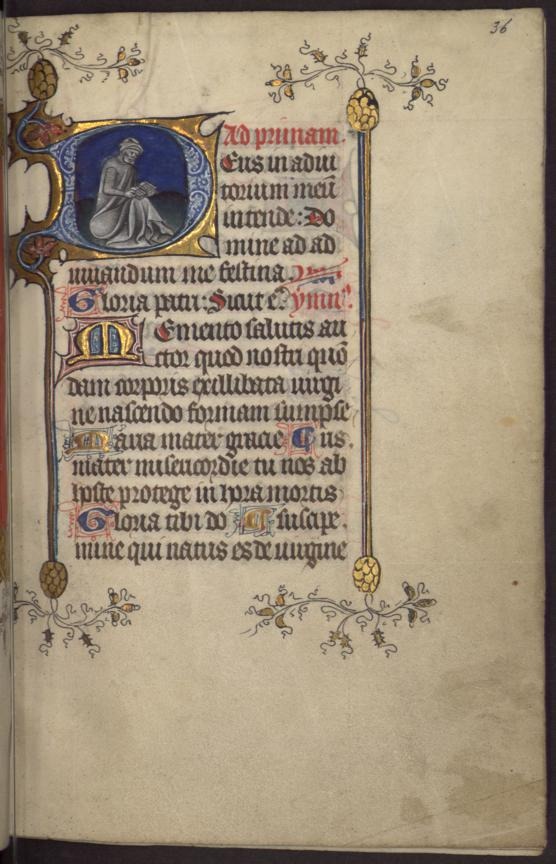 36
Ad primam.
Deus in adiu
torium meū
intende: Do
mine ad ad
iuuandum me festina.
Gloria patri: Sicut e. ymnꝰ.
Memento salutis au
ctor quod nostri quō
dam corporis ex illibata uirgi
ne nascendo formam sumpse
Maria mater gracie
mater misericordie tu nos ab
hoste protege in hora mortis suscipe.
Gloria tibi do
mine qui natus es de uirgine